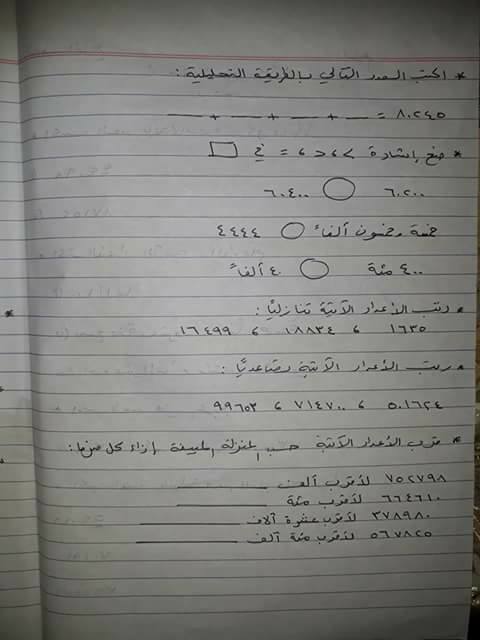 * اكتب العدد التالي بالطريقة التحليلية :
٨٠٢٤٥ = __ + __ + __ + __
* ضع إشارة > ، < ، = في □
٦٠٢٠٠ ○ ٦٠٤٠٠
خمسة وخمسون ألفاً ○ ٤٤٤٤
٤٠٠ مئة ○ ٤٠ ألفاً
* رتب الأعداد الآتية تنازلياً :
١٦٣٥ ، ١٨٨٣٤ ، ١٦٤٩٩
* رتب الأعداد الآتية تصاعدياً :
٥٠١٦٢٤ ، ٧١٤٧٠٠ ، ٩٩٦٥٣
* قرب الأعداد الآتية حسب المنزلة المبينة إزاء كل منها :
٧٥٢٧٩٨ لأقرب ألف ______
٦٦٤٦١٠ لأقرب مئة ______
٣٧٨٩٨٠ لأقرب عشرة آلاف ______
٥٦٧٨٢٥ لأقرب مئة ألف ______